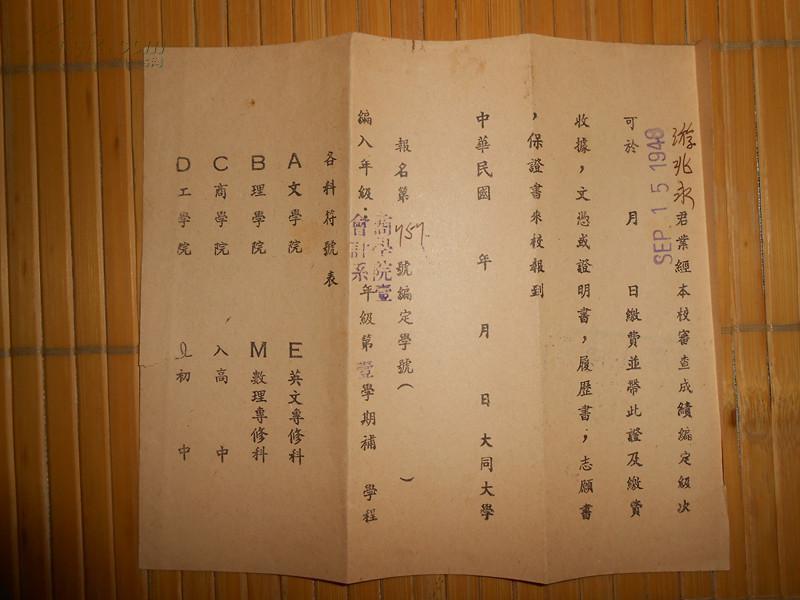 游兆永君業經本校審查成績編定級次
可於 月 日繳費並帶此證及繳費
SEP 15 1948
收據，文憑或證明書，履歷書，志願書
，保證書來校報到
中華民國 年 月 日大同大學
報名第757號編定學號（ ）
編入年級：商學院壹會計系年級第壹學期補 學程
各科符號表
A文學院 E英文專修科
B理學院 M數理專修科
C商學院 入高中
D工學院 初中